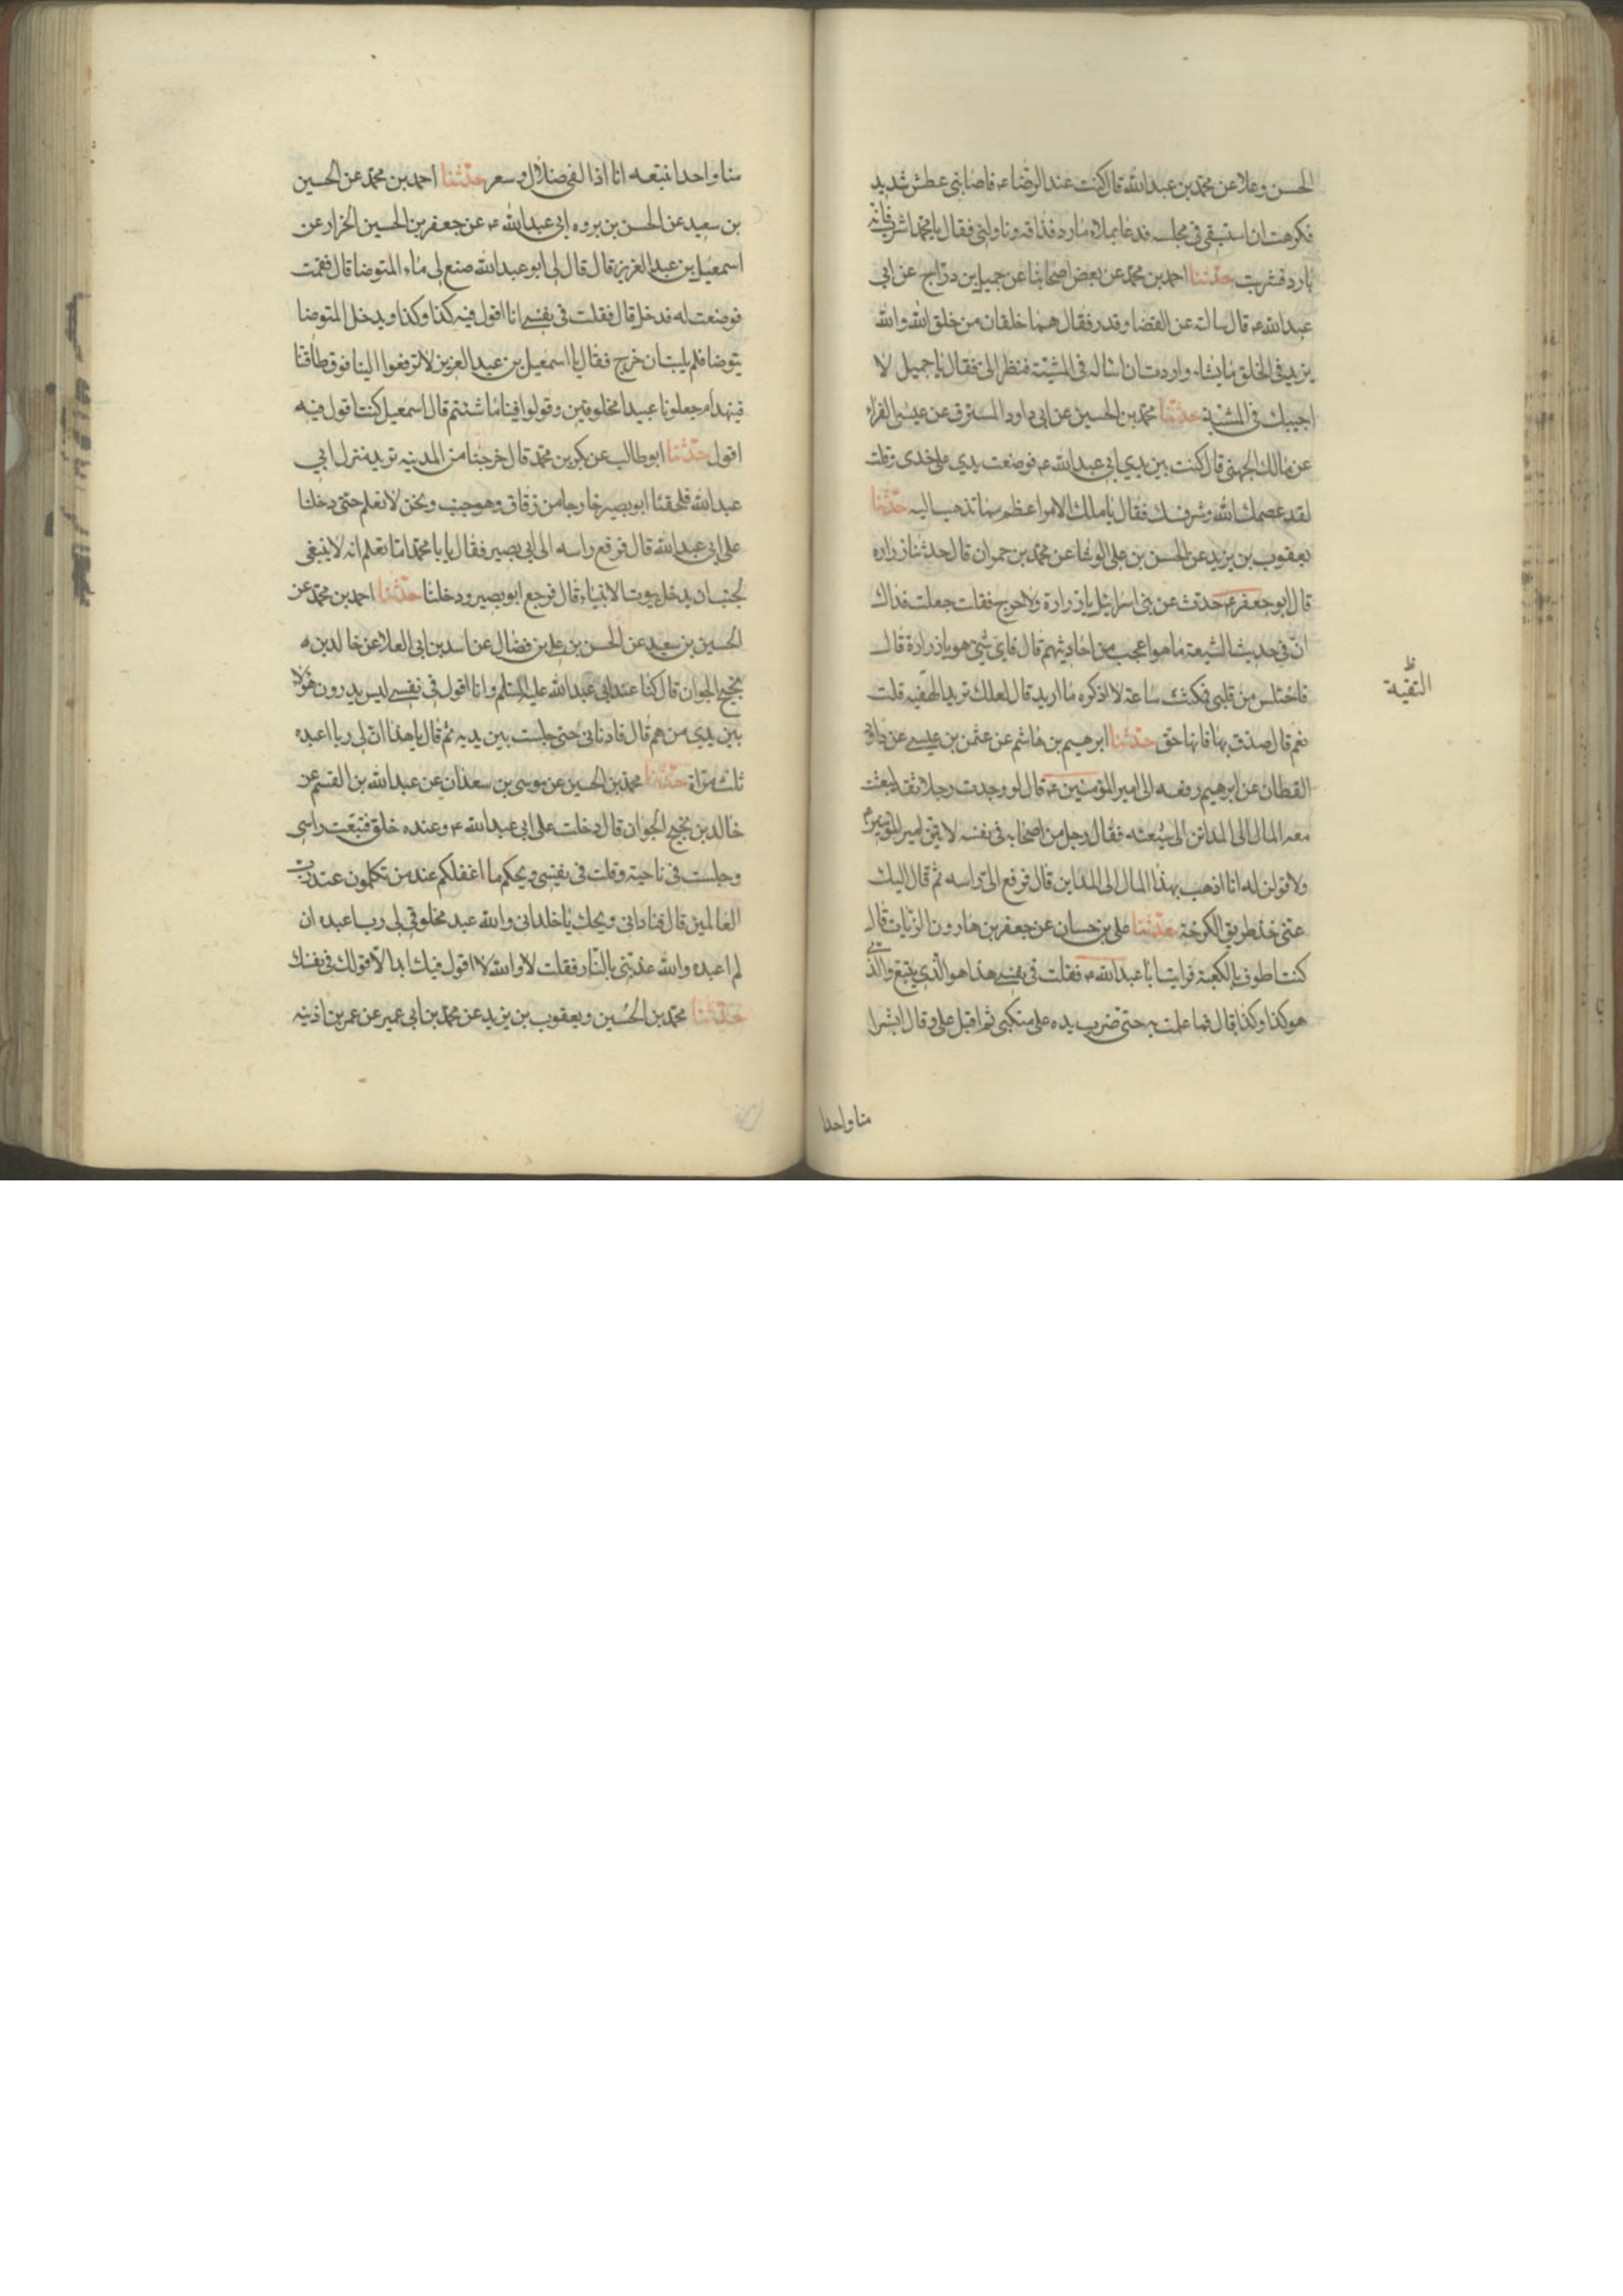 الحسن وعلا عن محمد بن عبدالله قال كنت عند الرضاء ع فاصابنى عطش شديد
فكرهت ان استسقى فى مجلسه فدعا بماء فذاقه وناولنى فقال يا محمد اشرب فانه
بارد فشربت حدثنا احمد بن محمد عن بعض اصحابنا عن جميل بن دراج عن ابى
عبدالله ع قال سالته عن القضا وقدر فقال هما خلقان من خلق الله والله
يزيد فى الخلق ما يشاء واردت ان اساله فى المشيّة فنظر الى فقال يا جميل لا
اجيبك فى المشيّة حدثنا محمد بن الحسين عن ابى داود المسترق عن عيسى الفراء
عن مالك الجهنى قال كنت بين يدى ابى عبدالله ع فوضعت يدى على خدى وقلت
لقد عصمك الله وشرفك فقال يا ملك الامر اعظم مما تذهب اليه حدثنا
يعقوب بن يزيد عن الحسن بن على الوشا عن محمد بن حمران قال حدثنا زراره
قال ابو جعفر ع حدث عن بنى اسرائيل يا زرارة ولا حرج فقلت جعلت فداك
ان فى حديث الشيعة ما هو اعجب من احاديثهم قال فاى شئ هو يا زرارة قال
فاختلس من قلبى فمكثت ساعة لا اذكره ما اريد قال لعلك تريد الهفيه قلت
نعم قال صدق بها فانها حق حدثنا ابرهيم بن هاشم عن عثمن بن عيسى عن داود
القطان عن ابرهيم رفعه الى امير المؤمنين ع قال لو وجدت رجلا ثقة لبعثت
معه المال الى المدائن الى شيعته فقال رجل من اصحابه فى نفسه لاتين امير المؤمنين ع
ولاقولن له انا اذهب بهذا المال الى المداين قال فرفع الى راسه ثم قال اليك
عنى خذ طريق الكرخة حدثنا على بن حسان عن جعفر بن هارون الزيات قال
كنت اطوف بالكعبة فرايت ابا عبدالله ع فقلت فى نفسى هذا هو الذى يتبع والذى
هو كذا وكذا قال فما علمت به حتى ضرب يده على منكبى ثم اقبل على وقال ابشرا
التقية
منا واحدا
منا واحدا نتبعه انا اذا لفى ضلال وسعر حدثنا احمد بن محمد عن الحسين
بن سعيد عن الحسن بن بروه ابى عبدالله ع عن جعفر بن الحسين الخزار عن
اسمعيل بن عبد العزيز قال قال لى ابو عبدالله ضع لى ماء المتوضا قال فقمت
فوضعت له فدخل قال فقلت فى نفسى انا اقول فيه كذا وكذا ويدخل المتوضا
يتوضا فلم يلبث ان خرج فقال يا اسمعيل بن عبد العزيز لا ترفعوا البنا فوق طاقتنا
فينهدم اجعلونا عبيدا مخلوقين وقولوا فينا ما شئتم قال اسمعيل كنت اقول فيه
اقول حدثنا ابو طالب عن بكر بن محمد قال خرجنا من المدينه تريد منزل ابى
عبدالله فلحقنا ابو بصير خارجا من زقاق وهو جنب ونحن لا نعلم حتى دخلنا
على ابى عبدالله قال فرفع راسه الى ابى بصير فقال يا با محمد اما تعلم انه لا ينبغى
لجنب ان يدخل بيوت الانبياء قال فرجع ابو بصير ودخلنا حدثنا احمد بن محمد عن
الحسين بن سعيد عن الحسن بن على بن فضال عن اسد بن ابى العلا عن خالد بن
نجيح الجوان قال كنا عند ابى عبدالله عليه السلم وانا اقول فى نفسى ليس يدرون هؤلا
بين يدى من هم قال فادنانى حتى جلست بين يديه ثم قال يا هذا ان لى ربا اعبده
ثلث مراة حدثنا محمد بن الحسين عن موسى بن سعدان عن عبدالله بن القسم عن
خالد بن نجيح الجوان قال دخلت على ابى عبدالله ع وعنده خلق فقنعت راسى
وجلست فى ناحية وقلت فى نفسى ويحكم ما اغفلكم عند من تكلمون عند رب
العالمين قال فنادانى ويحك يا خالد انى والله عبد مخلوق لى رب اعبده ان
لم اعبده والله عذبنى بالنار فقلت لا والله لا اقول فيك ابدا الا قولك فى نفسك
حدثنا محمد بن الحسين ويعقوب بن يزيد عن محمد بن ابى عمير عن عمر بن اذينه